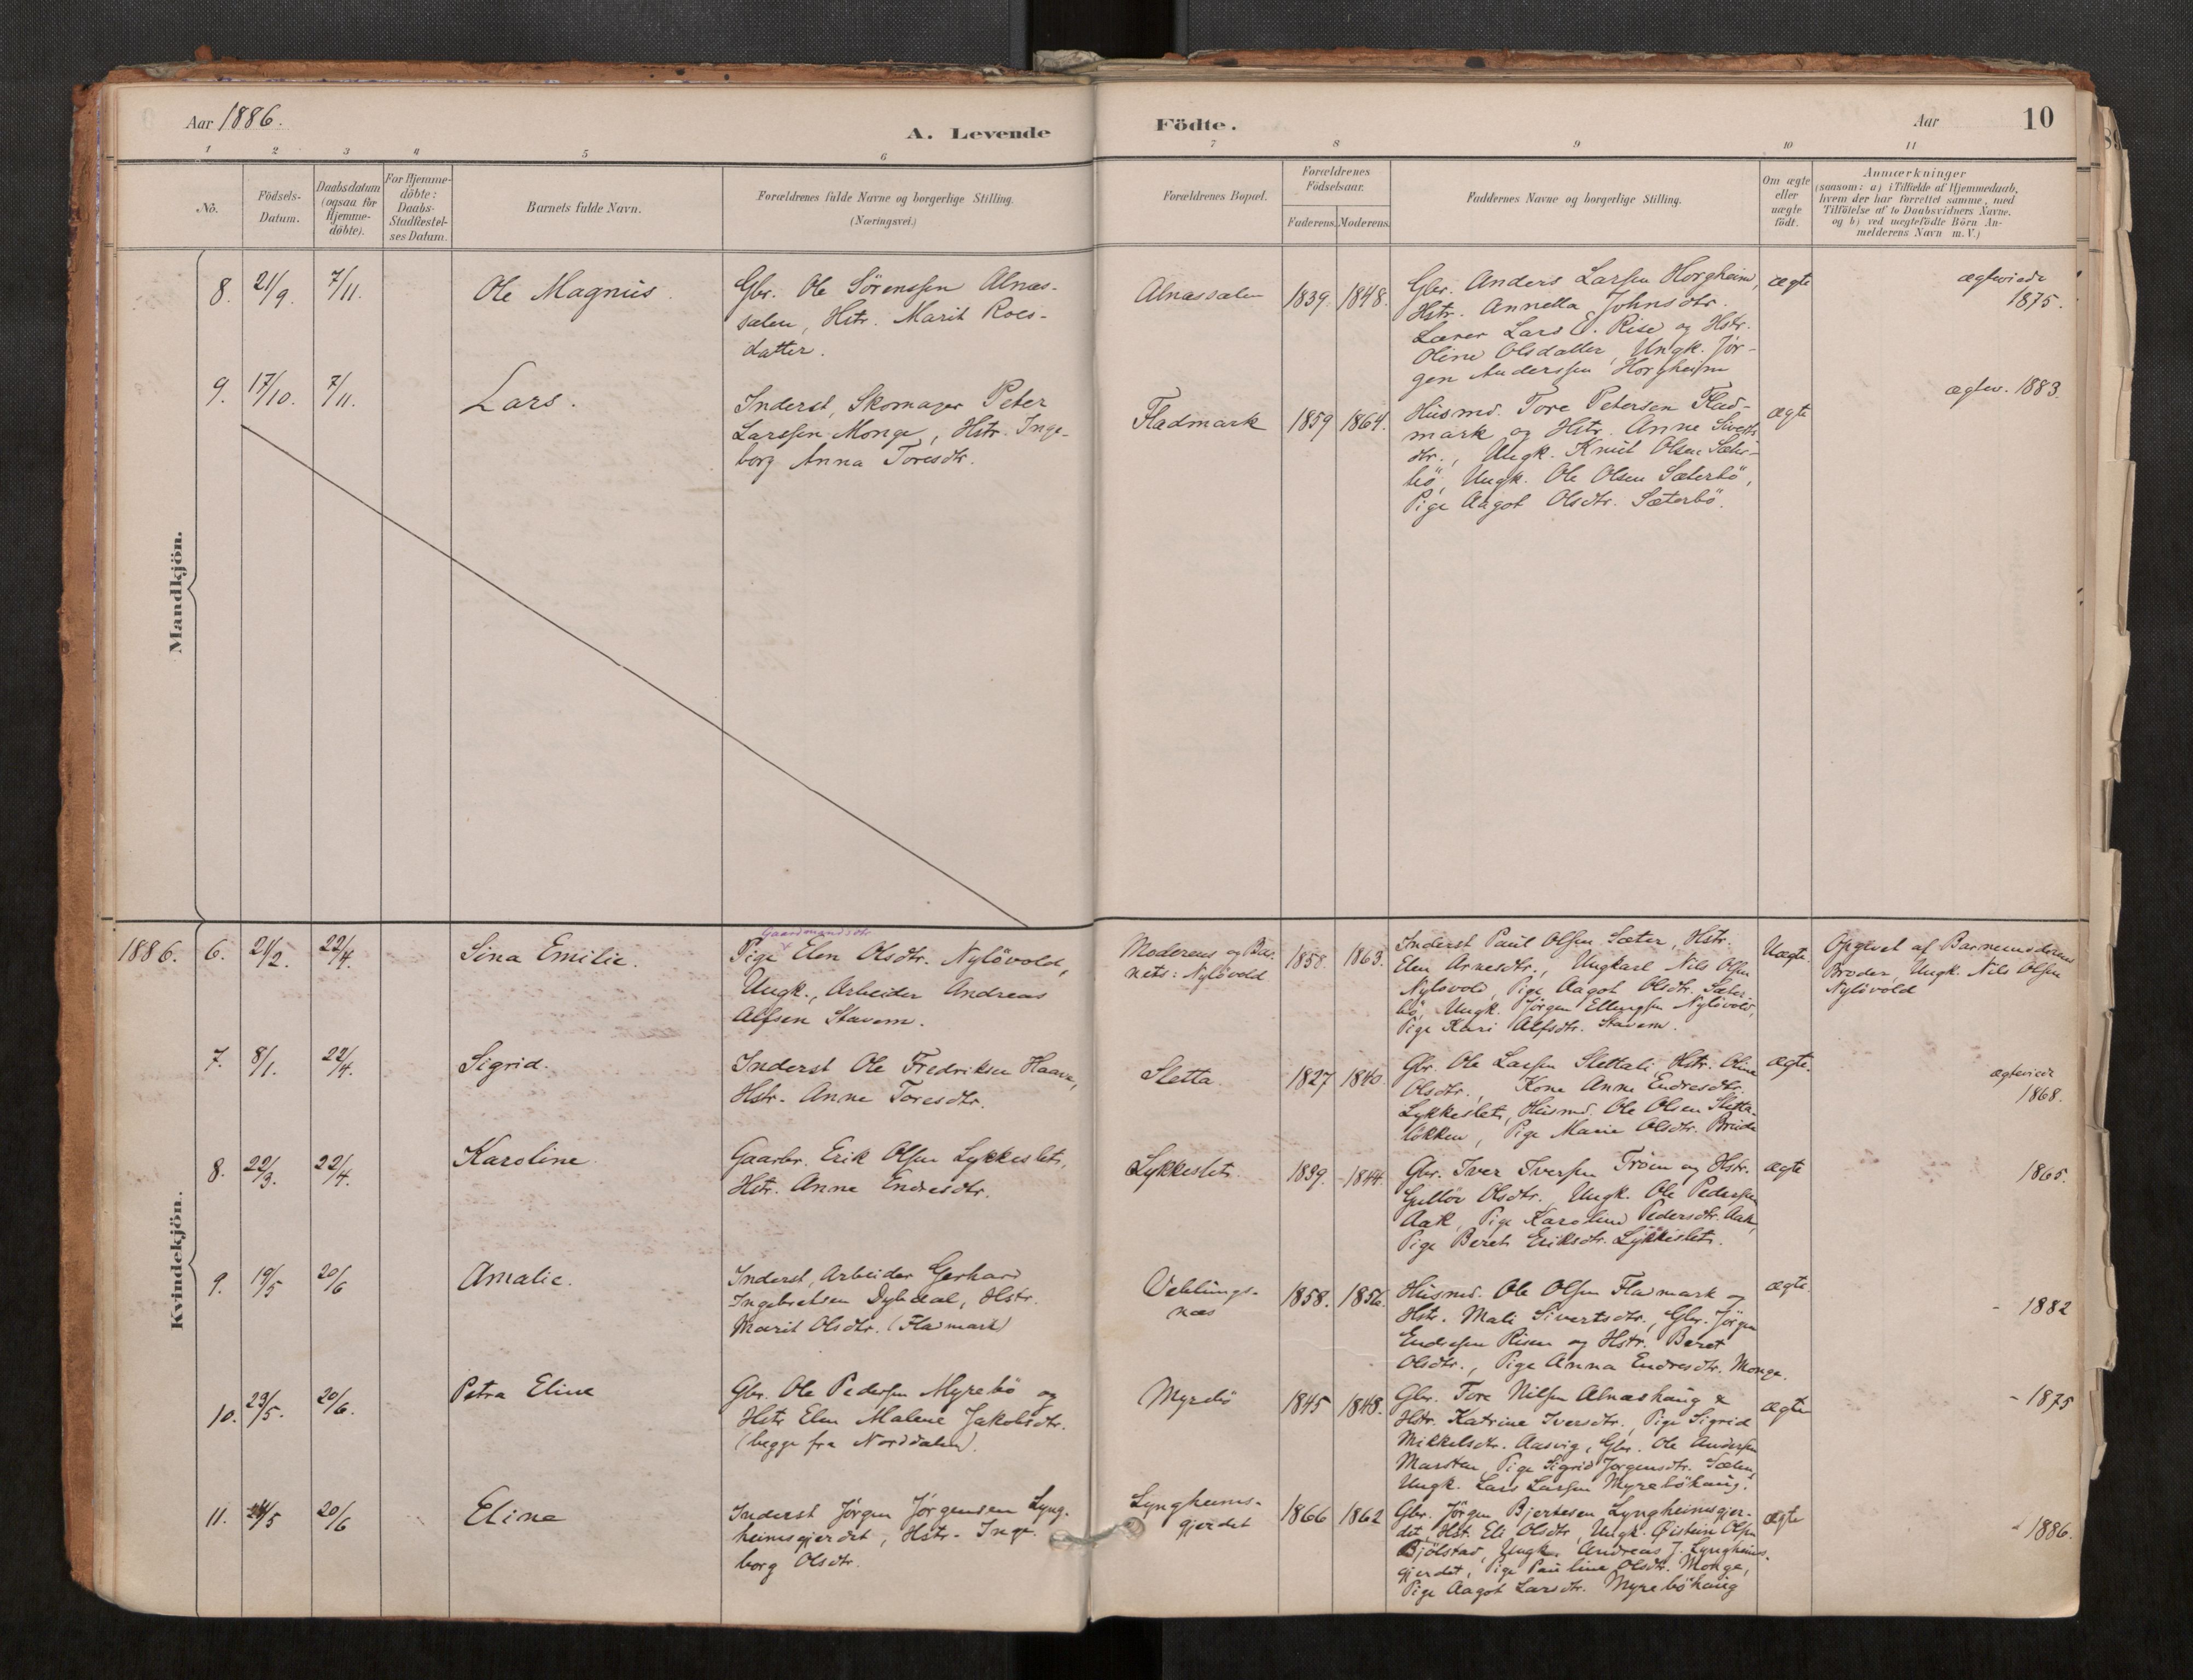 Aar 1886.
A. Levende
Födte.
Aar
10
1
2
3
4
5
6
7
8
9
10
11
No.
Födsels-
Datum.
Daabsdatum
(ogsaa for
Hjemme-
döbte).
For Hjemme-
döbte:
Daabs-
Stadfæstel-
ses Datum.
Barnets fulde Navn.
Forældrenes fulde Navne og borgerlige Stilling.
(Næringsvei.)
Forældrenes Bopæl.
Forældrenes
Födselsaar.
Faderens.
Moderens.
Faddernes Navne og borgerlige Stilling.
Om ægte
eller
uægte
født.
Anmærkninger
(saasom: a) i Tilfælde af Hjemmedaab,
hvem der har forrettet samme, med
Tilföielse af to Daabsvidners Navne.
og b) ved uægtefödte Börn An-
melderens Navn m. V.)
Mandkjön.
8.
21/9.
7/11.
Ole Magnus.
Gbr. Ole Sörenssen Alnæs-
salen, Hstr. Marit Roes-
datter.
Alnæssalen
1839.
1848.
Gbr. Anders Larsen Horgheim,
Hstr. Annetta Johnsdtr.
Lærer Lars E. Rise og Hstr.
Oline Olsdatter, Ungk. Jör-
gen Anderssen Horgheim
ægte
ægteviede
1875.
9.
17/10.
7/11.
Lars.
Inderst, Skomager Peter
Larssen Monge, Hstr. Inge-
borg Anna Toresdtr.
Fladmark
1859
1864.
Husmd. Tore Petersen Flad-
mark og Hstr. Anne Siverts
dtr., Ungk. Knut Olsen Sæter-
bö, Ungk. Ole Olsen Sæterbö,
Pige Aagot Olsdtr. Sæterbö.
ægte
ægtev. 1883.
Kvindekjön.
1886.
6.
21/2.
22/4.
Sina Emilie.
Gaardmandsdtr
Pige Elen Olsdtr. Nylövold,
Ungk., Arbeider Andreas
Alfsen Stavem.
Moderens og Bar-
nets: Nylövold
1858.
1863.
Inderst Paul Olsen Sæter, Hstr.
Elen Arnesdtr., Ungkarl Nils Olsen
Nylövold, Pige Aagot Olsdtr. Sæter-
bö, Ungk. Jörgen Ellingsen Nylövold,
Pige Kari Alfsdtr. Stavem.
Uægte.
Opgivet af Barnemoderens
Broder, Ungk. Nils Olsen
Nylövold
7.
8/1.
22/4.
Sigrid.
Inderst Ole Fredriksen Haave,
Hstr. Anne Toresdtr.
Sletta.
1827
1840.
Gbr. Ole Larsen Slettali, Hstr. Oline
Olsdtr., Kone Anne Endresdtr.
Lykkeslet, Husmd. Ole Olsen Sletta-
lökken, Pige Marie Olsdtr. Breide
ægte.
ægteviede
1868.
8.
22/3.
22/4.
Karoline.
Gaarbr. Erik Olsen Lykkeslet,
Hstr. Anne Endresdtr.
Lykkeslet.
1839.
1844.
Gbr. Iver Iversen Tröen og Hstr.
Gullöv Olsdtr., Ungk. Ole Pedersen
Aak, Pige Karoline Pedersdtr. Aak,
Pige Beret Eriksdtr. Lykkeslet.
ægte
1865.
9.
19/5
20/6
Amalie.
Inderst, Arbeider Gerhard
Ingebretsen Dybdal, Hstr.
Marit Olsdtr. (Fladmark)
Veblungs-
næs
1858.
1856.
Husmd. Ole Olsen Fladmark og
Hstr. Mali Sivertsdtr., Gbr. Jörgen
Endresen Risen og Hstr. Beret
Olsdtr., Pige Anna Endresdtr. Monge.
ægte.
- 1882
10.
23/5.
20/6.
Petra Eline
Gbr. Ole Pedersen Myrebö og
Hstr Elen Malene Jakobsdtr.
(begge fra Norddalen).
Myrebö
1845
1848.
Gbr. Tore Nilsen Alnæshaug &
Hstr. Katrine Iversdtr., Pige Sigrid
Mikkelsdtr. Aasvig, Gbr. Ole Andersen
Marsten, Pige Sigrid Jorgensdtr. Sælen,
Ungk. Lars Larsen Myreböhaug.
ægte
- 1875
11.
24/5
20/6
Eline
Inderst Jörgen Jörgensen Lyng-
heimsgjerdet, Hstr. Inge-
borg Olsdtr.
Lyngheims-
gjerdet
1866
1862
Gbr. Jörgen Bjertesen Lyngheimsgjer-
det, Hstr. Eli Olsdtr, Ungk. Öistein Olsen
Bjölstad, Ungk. Andreas J. Lyngheims-
gjerdet, Pige Pauline Olsdtr. Monge,
Pige Aagot Larsdtr. Myreböhaug
ægte
- 1886.